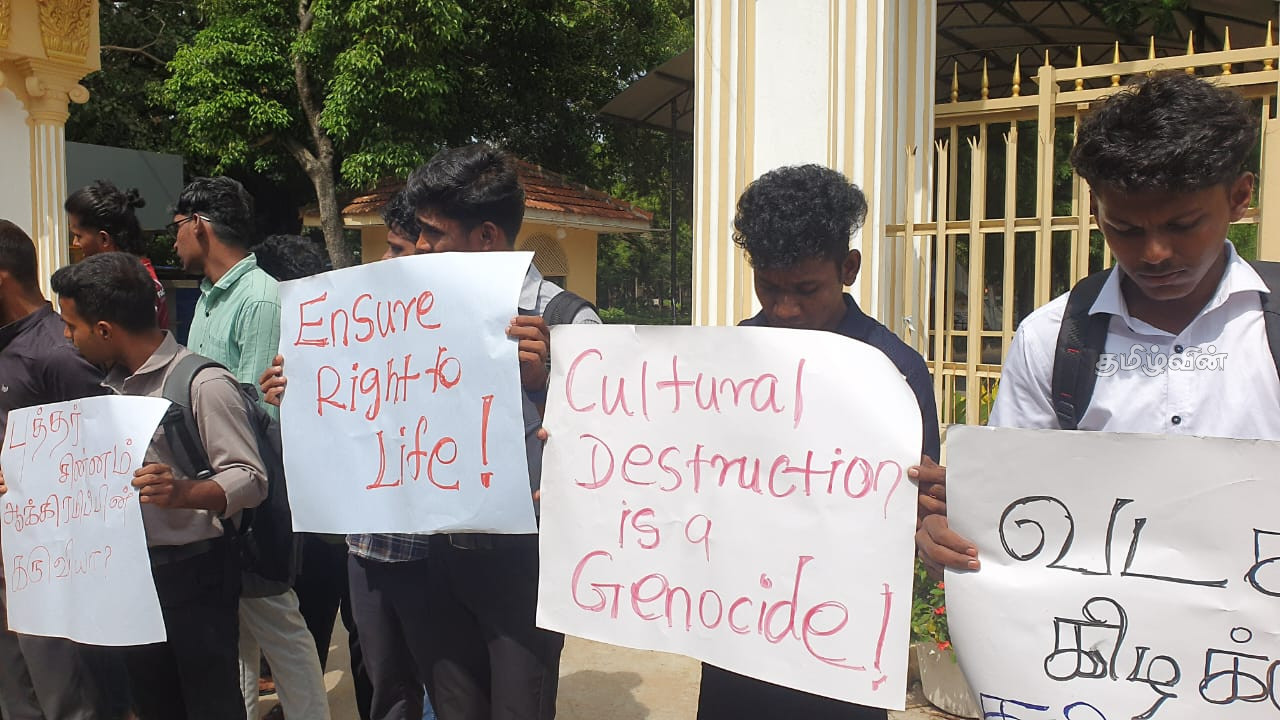 புத்தர்
சின்னம்
ஆக்கிரமிப்பின்
கருவியா?
Ensure
Right to
Life!
Cultural
Destruction
is a
Genocide!
வட
கிழக்
தமிழ்வின்